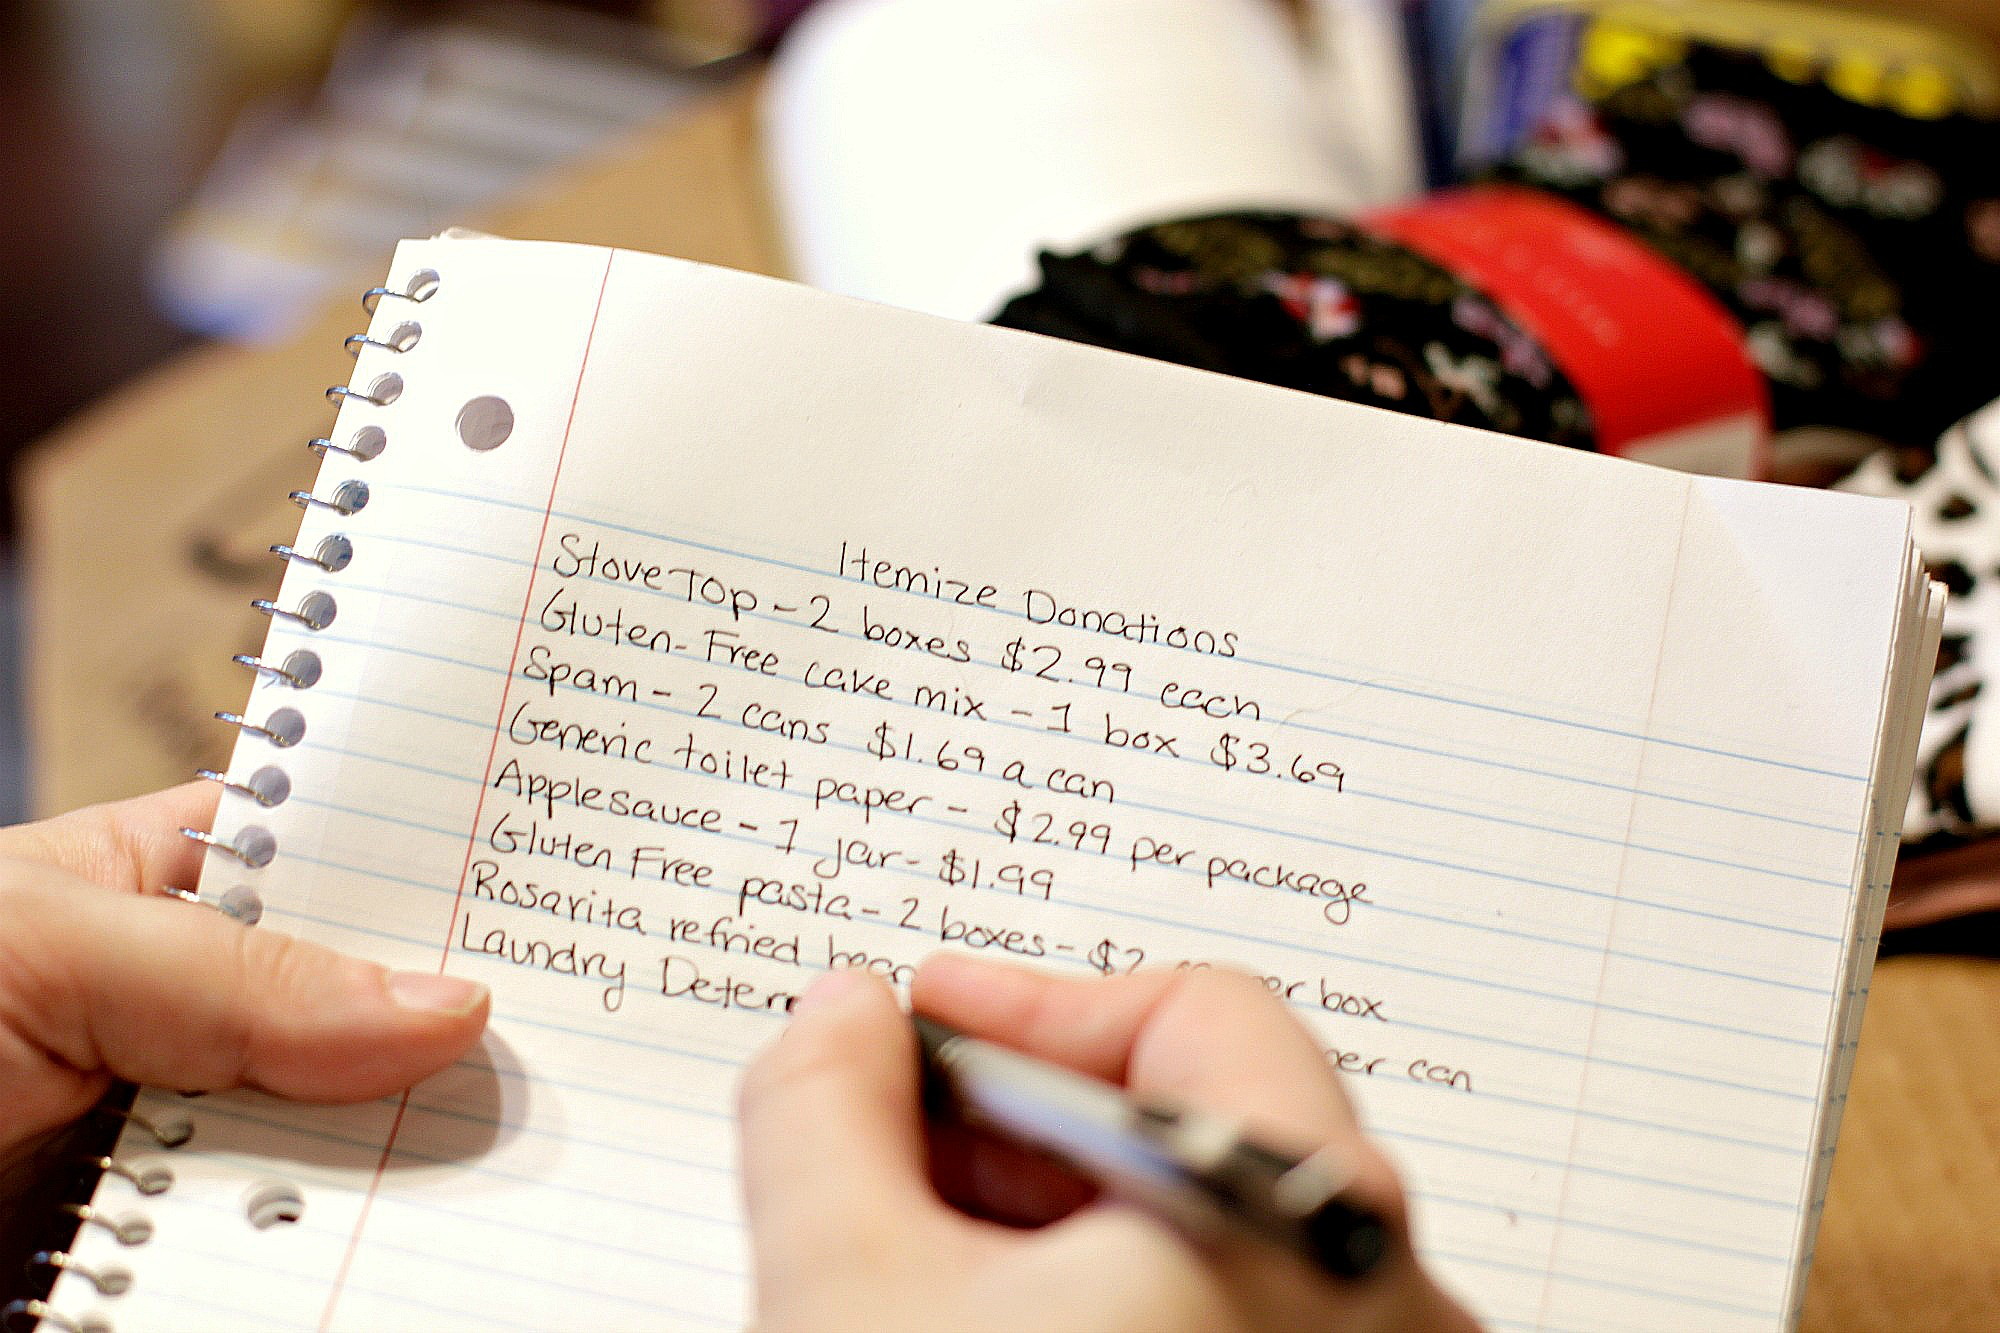 Itemize Donations
StoveTop - 2 boxes $2.99 each
Gluten-Free cake mix - 1 box $3.69
Spam - 2 cans $1.69 a can
Generic toilet paper - $2.99 per package
Applesauce - 1 jar - $1.99
Gluten Free pasta - 2 boxes - $2 per box
Rosarita refried per can
Laundry